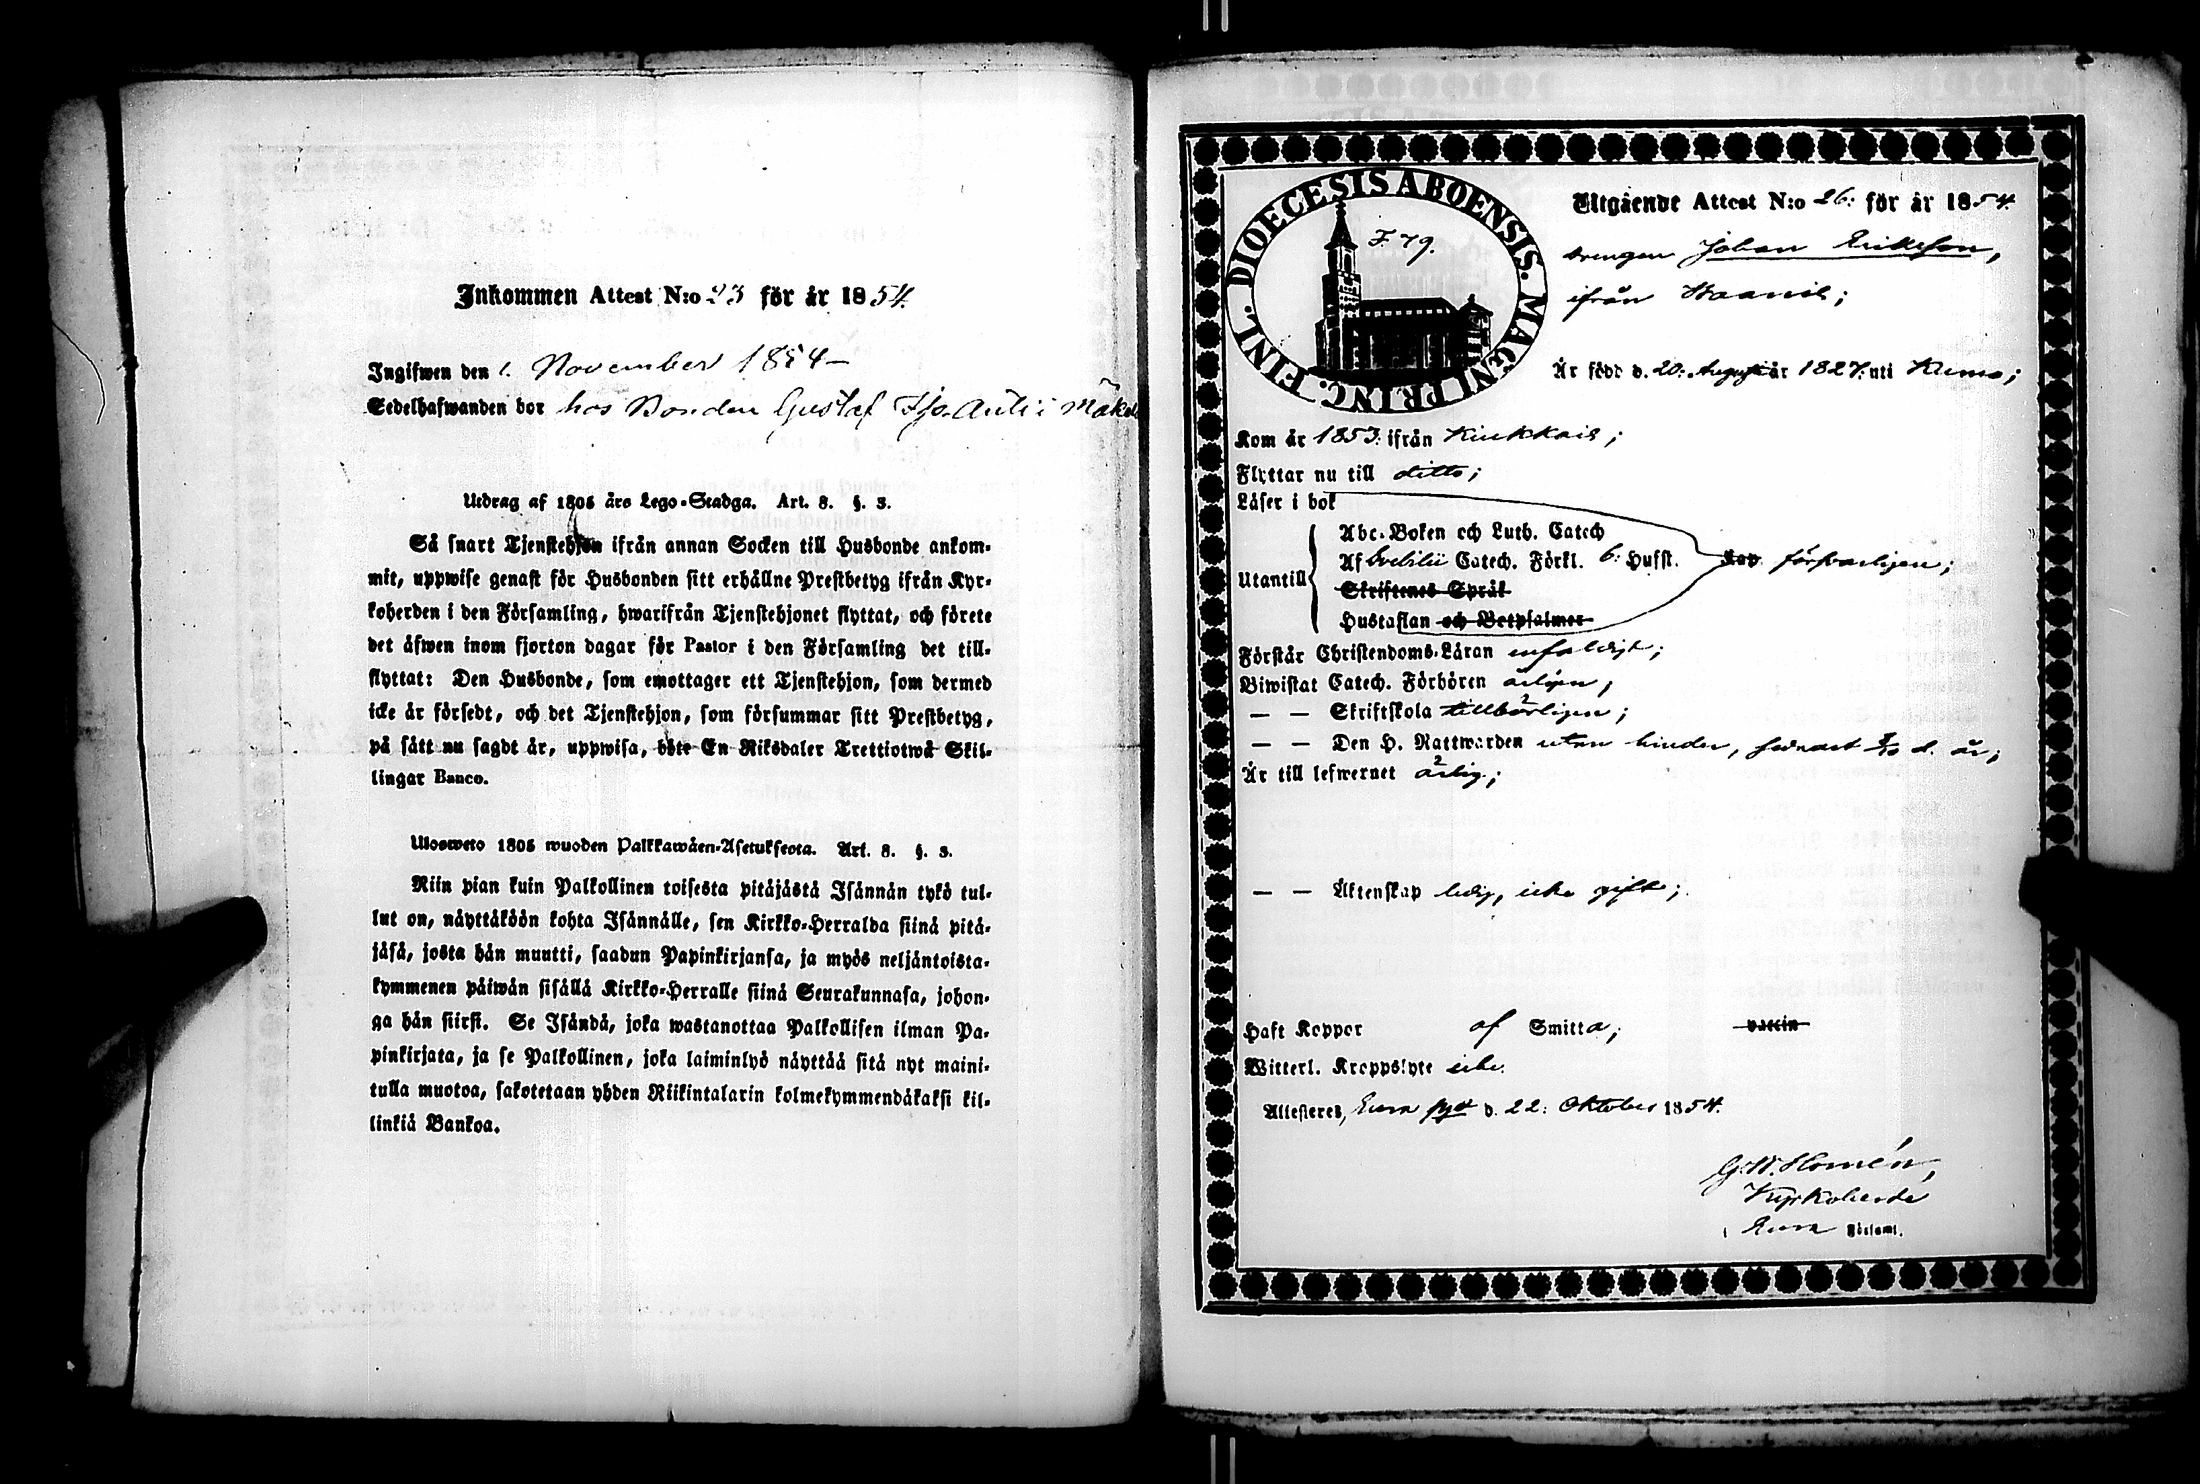 Inkommen Attest N:o 23 för år 1854.
Ingifwen den 1. November 1854 –
Sedelhafwanden bor hos Bonden Gustaf
Utdrag af 1805 års Lego-Stadga. Art. 8. §. 3.
Så snart Tjenstehjon ifrån annan Socken till Husbonde ankom-
mit, uppwise genast för Husbonden sitt erhållne Prestbetyg ifrån Kyr-
koherden i den Församling, hwarifrån Tjenstehjonet flyttat, och förete
det äfwen inom fjorton dagar för Pastor i den Församling det till-
flyttat: Den Husbonde, som emottager ett Tjenstehjon, som dermed
icke är försedt, och det Tjenstehjon, som försummar sitt Prestbetyg,
på sätt nu sagdt är, uppwisa, böte En Riksdaler Trettiotwå Skil-
lingar Banco.
Ulosweto 1805 wuoden Palkkawäen-Asetuksesta. Art. 8. §. 3.
Niin pian kuin Palkollinen toisesta pitäjästä Isännän tykö tul-
lut on, näyttäköön kohta Isännälle, sen Kirkko-Herralda siinä pitä-
jäsä, josta hän muutti, saadun Papinkirjansa, ja myös neljäntoista-
kymmenen päiwän sisällä Kirkko-Herralle siinä Seurakunnasa, johon-
ga hän siirsi. Se Isändä, joka wastanottaa Palkollisen ilman Pa-
pinkirjata, ja se Palkollinen, joka laiminlyö näyttää sitä nyt maini-
tulla muotoa, sakotetaan yhden Riikintalarin kolmekymmendäkaksi kil-
linkiä Bankoa.
DIOECESIS ABOENSIS. MAGNI PRINC. FINL.
F. 79.
Utgående Attest N:o 26: för år 1854.
drengen Johan Eriksson,
ifrån
Är född d. 20: Augusti år 1827: uti Kumo;
Kom år 1853: ifrån Kiukkais;
Flyttar nu till ditto;
Läser i bok
Utantill
Abc-Boken och Luth. Catech
Af Svebilii Catech. Förkl. 6: Hufst. Kap försvarligen;
Skriftenes Språk
Hustaflan och Botpsalmer
Förstår Christendoms-Läran enfaldigt;
Biwistat Catech. Förhören årligen;
— — Skriftskola tillbörligen;
— — Den H. Nattwarden utan hinder, senast d. år;
Är till lefwernet ärlig;
— — Äktenskap ledig, icke gift;
Haft Koppor af Smitta; vaccin
Witterl. Kroppslyte icke.
Attesteres, Eura d. 22: Oktober 1854.
G. W. Homén,
Kyrkoherde
i Eura Församl.